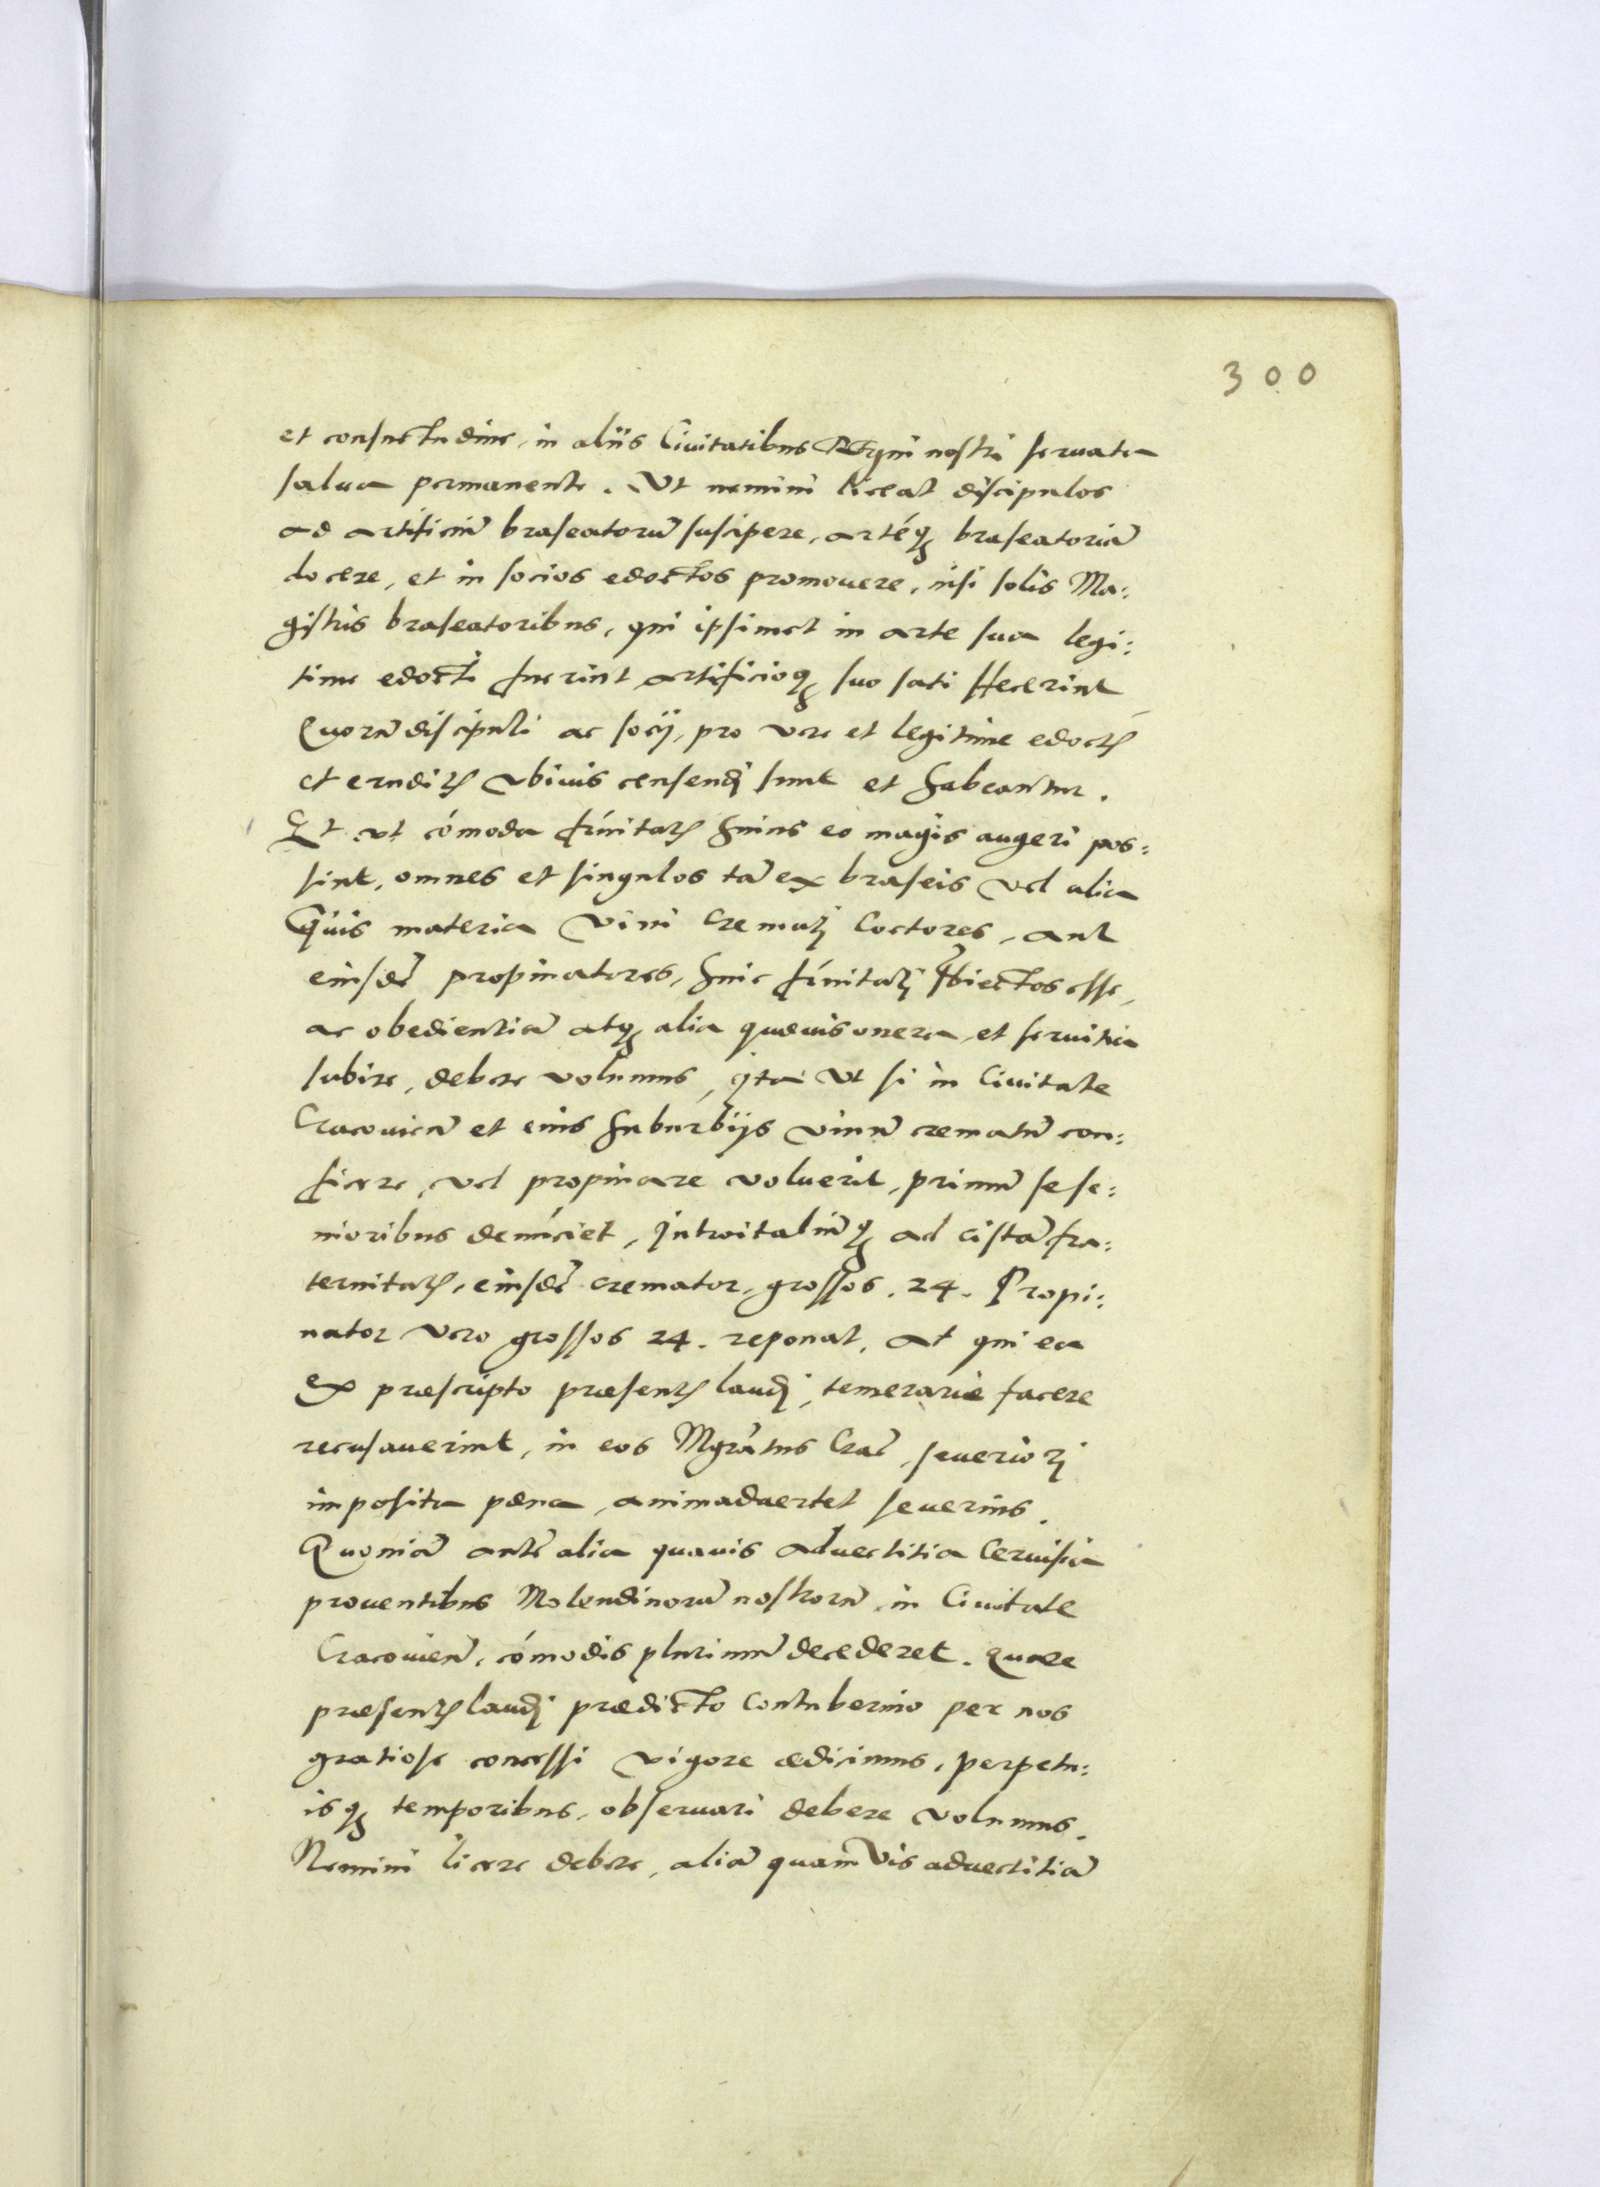 300
et consuetudine, in aliis Civitatibus Regni nostri servata
salva permanente. Ut nemini liceat discipulos
ad artificiũ braseatorũ suscipere, artéq braseatoriã
docere, et in socios edoctos promovere, nisi solis Ma:
gistris braseatoribus, qui ipsimet in arte sua legi:
time edocti fuerint artificioq suo satis fecerint
Quorũ discipuli ac socij, pro vere et legitime edoctis
et eruditis ubivis censendi sunt et habeantur.
Et ut cõmoda frũitatis huius eo magis augeri pos:
sint, omnes et singulos tã ex braseis vel alia
quis materia vini cremati coctores, aut
eiusdẽ propinatores, huic frũitati sbiectos esse,
ac obedientiã atq alia quævis onera, et servitia
subire, debere volumus, ita ut si in Civitate
Cracovieñ et eius suburbijs vinũ crematũ con:
ficere, vel propinare voluerit, primũ se se:
nioribus denũciet, introitaliũq ad cistã fra:
ternitatis, eiusdẽ cremator, grossos. 24. Propi:
nator vero grossos 24. reponat. At qui ea
ex præscripto præsentis laudi, temerarie facere
recusaverint, in eos Mgrãtus Crac̃, severiori
imposita pæna, animadvertet severius.
Quoniã autẽ alia quavis advectitia Cervisia
proventibus Molendinorũ nostrorũ, in Civitate
Cracovieñ, cõmodis plurimũ decederet. Quare
præsentis laudi prædicto Contubernio per nos
gratiose concessi vigore ædicimus, perpetu:
isq temporibus, observari debere volumus.
Nemini licere debere, aliã quamvis advectitiã